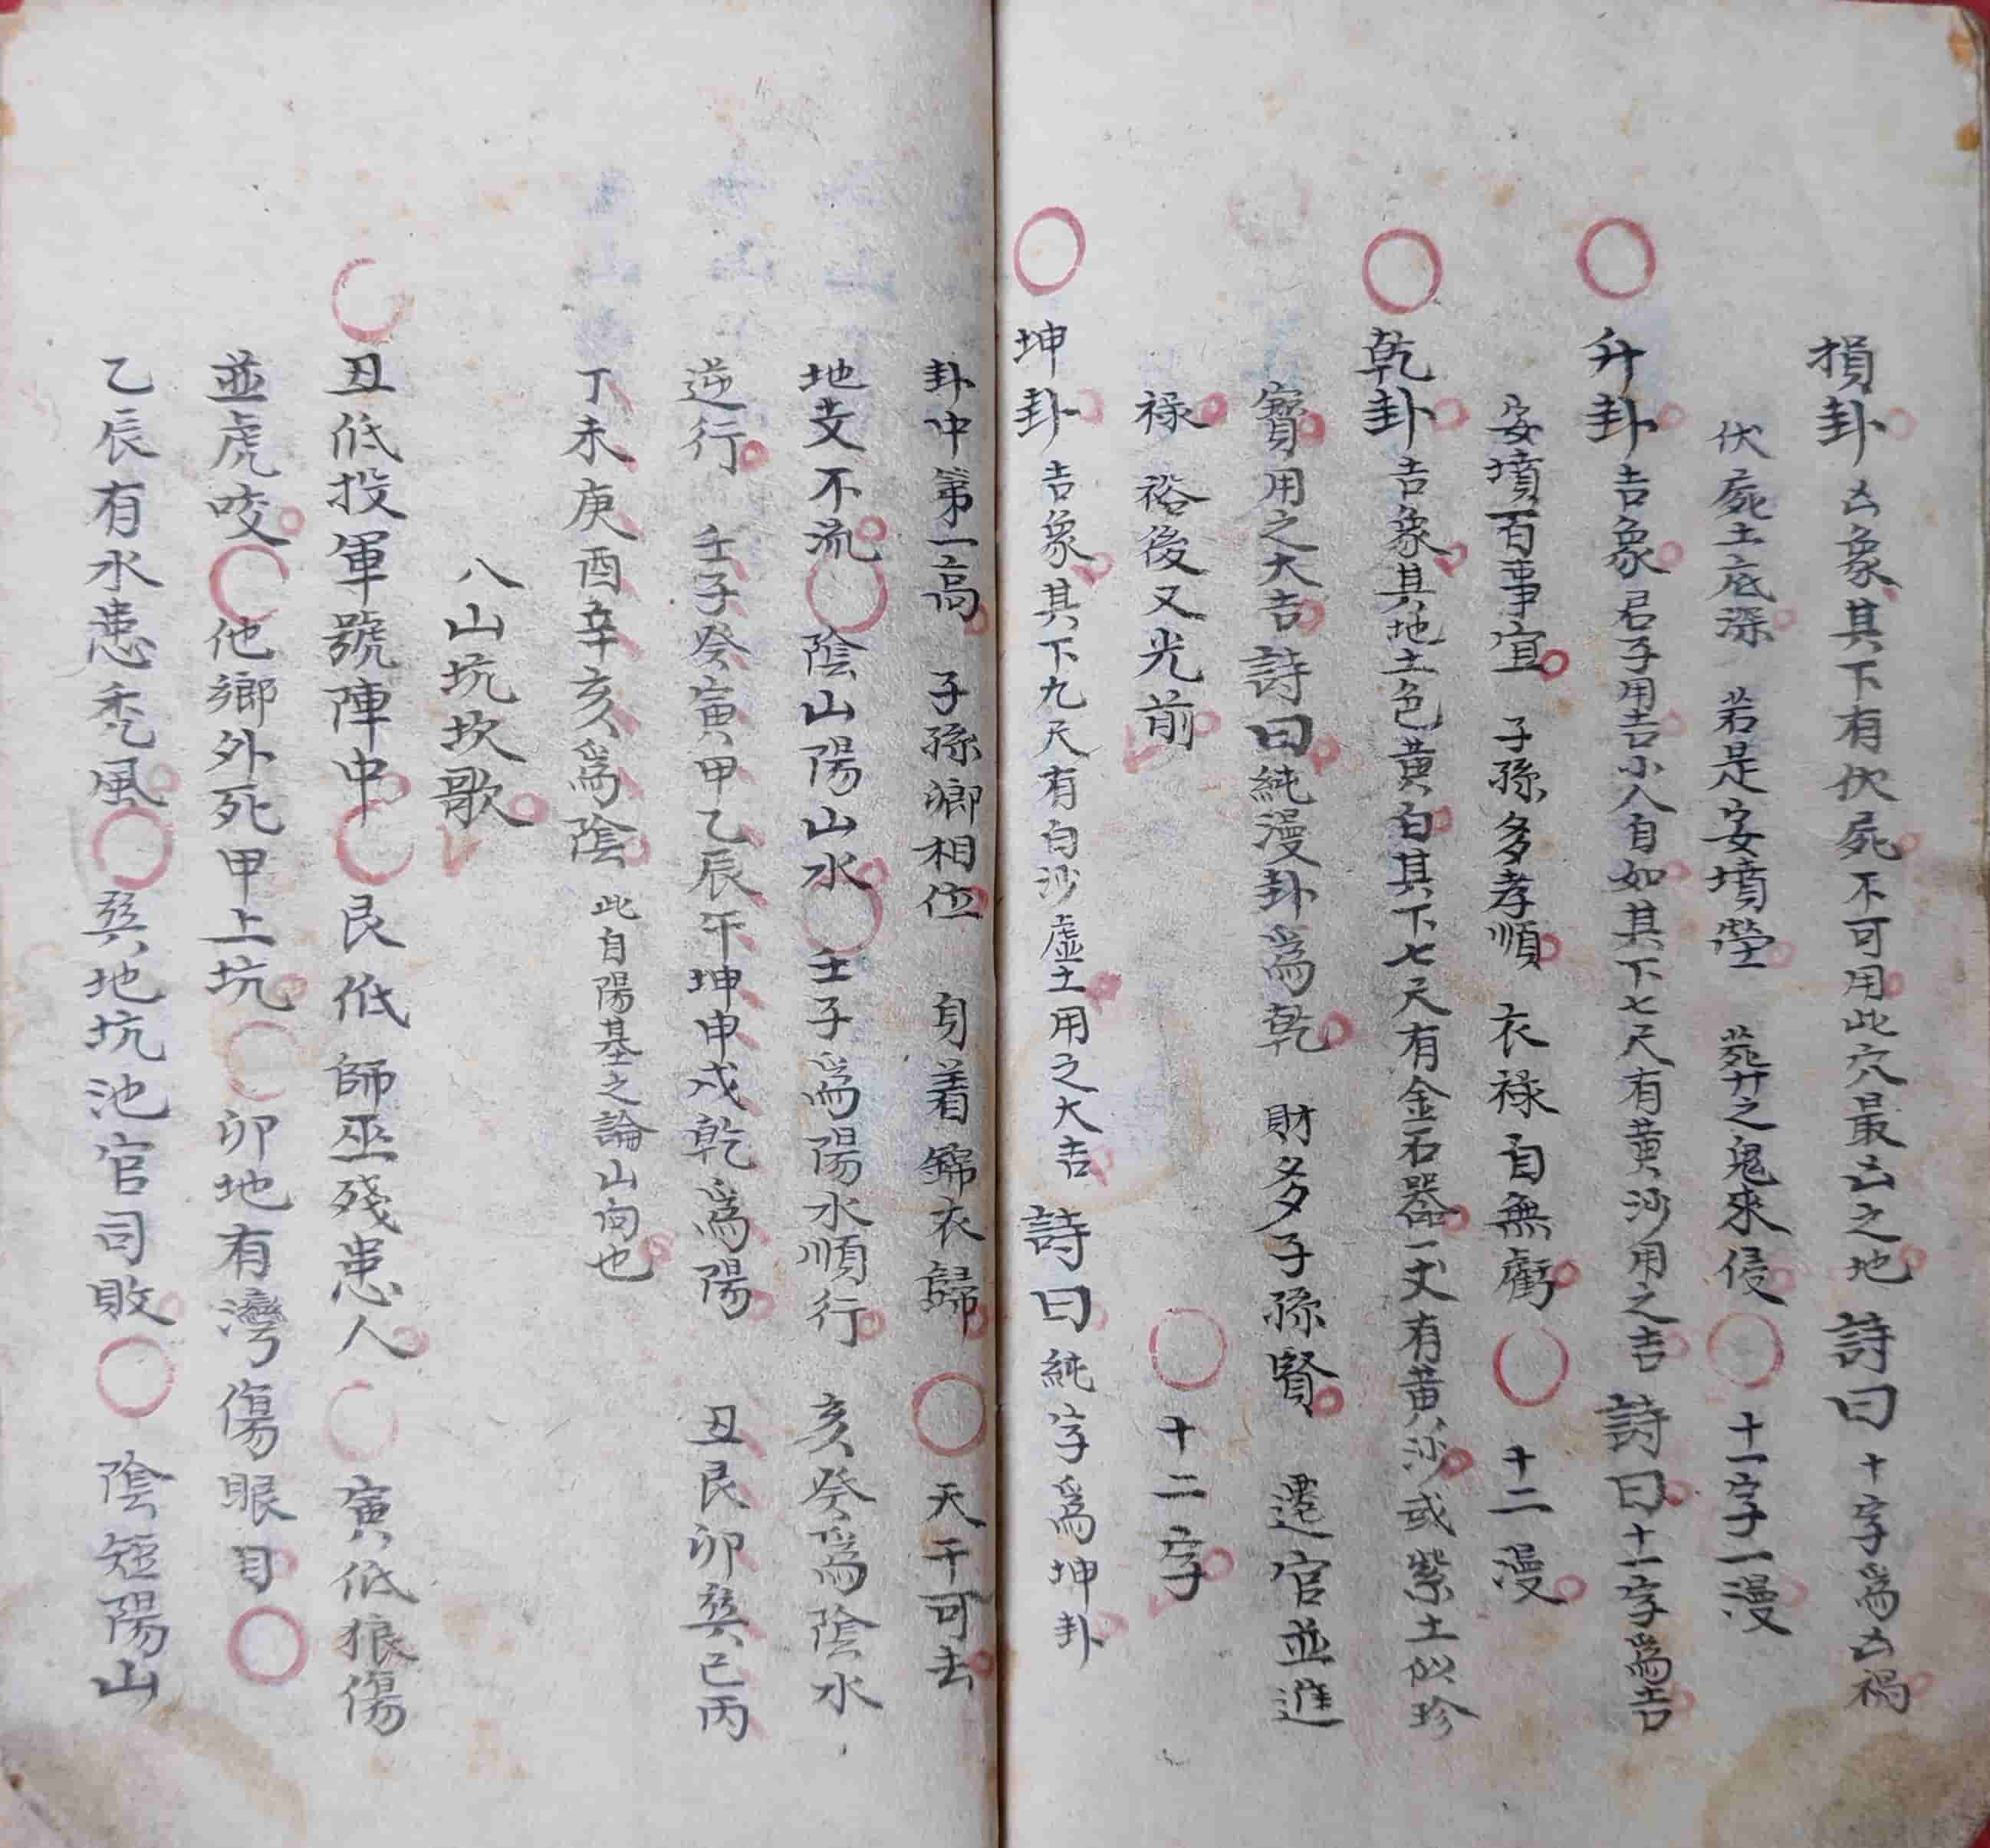 損卦凶象其下有伏屍不可用此穴最凶之地詩曰十字爲凶禍
伏屍土底深若是安墳塋茺廿之鬼來侵十一字一漫
升卦吉象君子用吉小人自如其下七尺有黄沙用之吉詩曰十一字爲吉
安墳百事宜子孫多孝順衣禄自無虧十二漫
乾卦吉象其地土色黄白其下七尺有金石器一丈有黄沙或紫土似珍
寶用之大吉詩曰純漫卦爲乾財多子孫賢遷官並進
禄裕後又光前十二字
坤卦吉象其下九尺有白沙虚土用之大吉詩曰純字爲坤卦
卦中第一高子孫卿相位身着錦衣歸天干可去
地支不流陰山陽山水壬子爲陽水順行亥癸爲陰水
逆行壬子癸寅甲乙辰午坤申戌乾爲陽丑艮卯巽巳丙
丁未庚酉辛亥爲陰此自陽基之論山向也
八山坑坎歌
丑低投軍號陣中艮低師巫殘患人寅低狼傷
並虎咬他鄉外死甲上坑卯地有灣傷眼目
乙辰有水患秃風巽地坑池官司敗陰短陽山